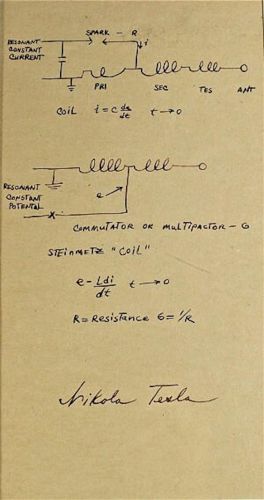 SPARK - R
RESONANT
CONSTANT
CURRENT
i
PRI SEC TES ANT
COIL i = C de/dt t → 0
RESONANT
CONSTANT
POTENTAL
e
COMMUTATOR OR MULTIPACTOR - G
STEINMETZ "COIL"
e - Ldi/dt t → 0
R = RESISTANCE G = 1/R
Nikola Tesla